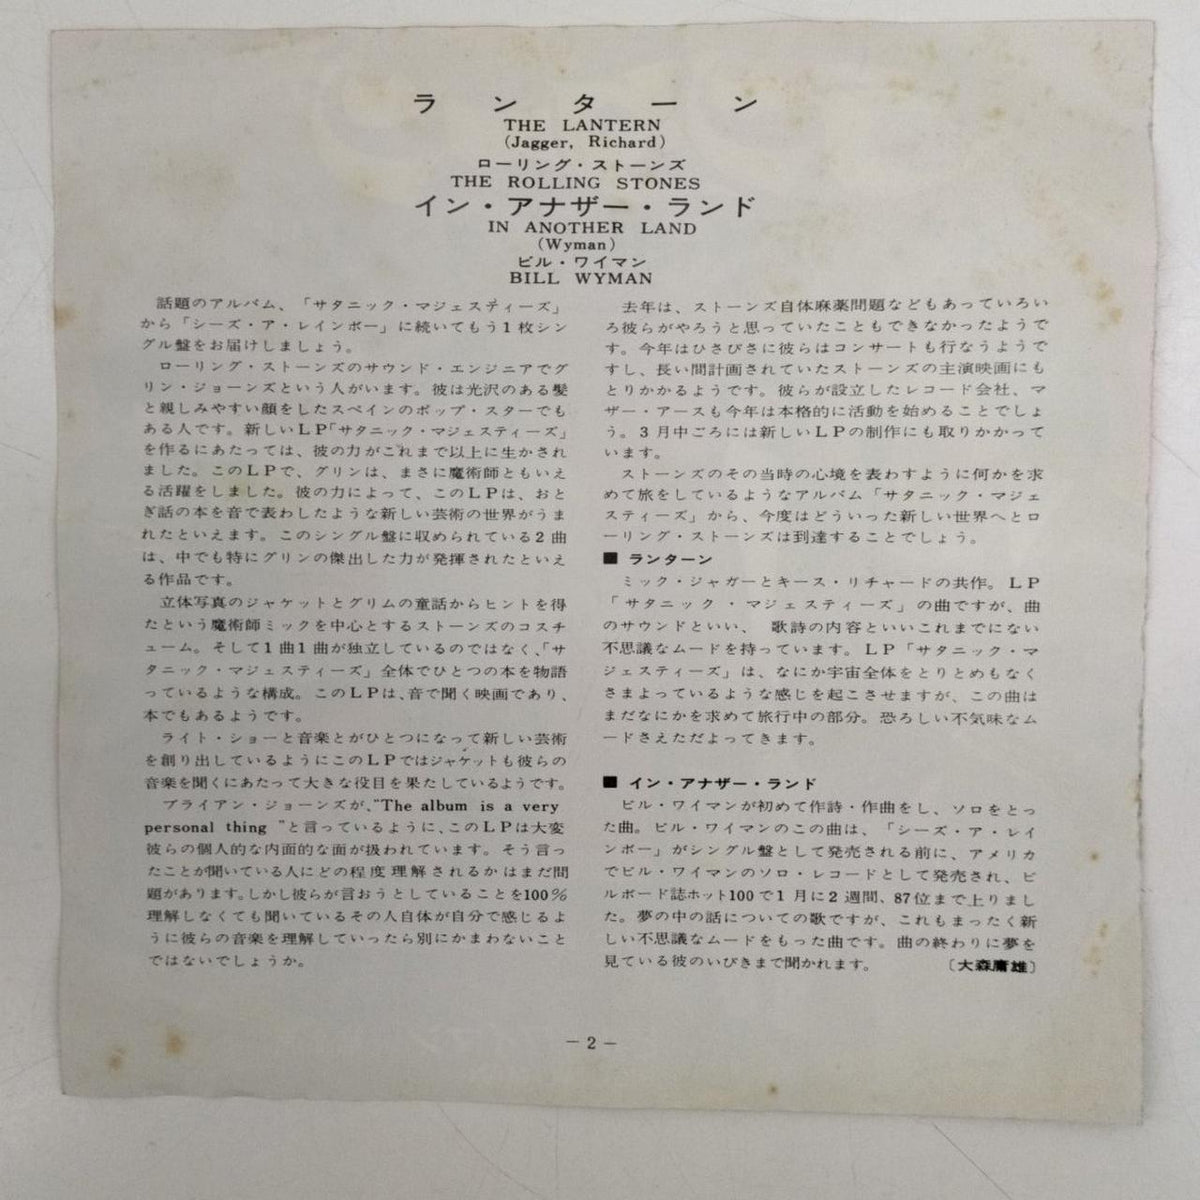 ランターン
THE LANTERN
(Jagger, Richard)
ローリング・ストーンズ
THE ROLLING STONES
イン・アナザー・ランド
IN ANOTHER LAND
(Wyman)
ビル・ワイマン
BILL WYMAN
話題のアルバム、「サタニック・マジェスティーズ」
から「シーズ・ア・レインボー」に続いてもう1枚シン
グル盤をお届けしましょう。
ローリング・ストーンズのサウンド・エンジニアでグ
リン・ジョーンズという人がいます。彼は光沢のある髪
と親しみやすい顔をしたスペインのポップ・スターでも
ある人です。新しいLP「サタニック・マジェスティーズ」
を作るにあたっては、彼の力がこれまで以上に生かされ
ました。このLPで、グリンは、まさに魔術師ともいえ
る活躍をしました。彼の力によって、このLPは、おと
ぎ話の本を音で表わしたような新しい芸術の世界がうま
れたといえます。このシングル盤に収められている2曲
は、中でも特にグリンの傑出した力が発揮されたといえ
る作品です。
立体写真のジャケットとグリムの童話からヒントを得
たという魔術師ミックを中心とするストーンズのコスチ
ューム。そして1曲1曲が独立しているのではなく、「サ
タニック・マジェスティーズ」全体でひとつの本を物語
っているような構成。このLPは、音で聞く映画であり、
本でもあるようです。
ライト・ショーと音楽とがひとつになって新しい芸術
を創り出しているようにこのLPではジャケットも彼らの
音楽を聞くにあたって大きな役目を果たしているようです。
ブライアン・ジョーンズが、"The album is a very
personal thing "と言っているように、このLPは大変
彼らの個人的な内面的な面が扱われています。そう言っ
たことが聞いている人にどの程度理解されるかはまだ問
題があります。しかし彼らが言おうとしていることを100%
理解しなくても聞いているその人自体が自分で感じるよ
うに彼らの音楽を理解していったら別にかまわないこと
ではないでしょうか。
去年は、ストーンズ自体麻薬問題などもあっていろい
ろ彼らがやろうと思っていたこともできなかったようで
す。今年はひさびさに彼らはコンサートも行なうようで
すし、長い間計画されていたストーンズの主演映画にも
とりかかるようです。彼らが設立したレコード会社、マ
ザー・アースも今年は本格的に活動を始めることでしょ
う。3月中ごろには新しいLPの制作にも取りかかって
います。
ストーンズのその当時の心境を表わすように何かを求
めて旅をしているようなアルバム「サタニック・マジェ
スティーズ」から、今度はどういった新しい世界へとロ
ーリング・ストーンズは到達することでしょう。
■ ランターン
ミック・ジャガーとキース・リチャードの共作。LP
「サタニック・マジェスティーズ」の曲ですが、曲
のサウンドといい、 歌詩の内容といいこれまでにない
不思議なムードを持っています。LP「サタニック・マ
ジェスティーズ」は、なにか宇宙全体をとりとめもなく
さまよっているような感じを起こさせますが、この曲は
まだなにかを求めて旅行中の部分。恐ろしい不気味なム
ードさえただよってきます。
■ イン・アナザー・ランド
ビル・ワイマンが初めて作詩・作曲をし、ソロをとっ
た曲。ビル・ワイマンのこの曲は、「シーズ・ア・レイ
ンボー」がシングル盤として発売される前に、アメリカ
でビル・ワイマンのソロ・レコードとして発売され、ビ
ルボード誌ホット100で1月に2週間、87位まで上りまし
た。夢の中の話についての歌ですが、これもまったく新
しい不思議なムードをもった曲です。曲の終わりに夢を
見ている彼のいびきまで聞かれます。 〔大森庸雄〕
− 2 −